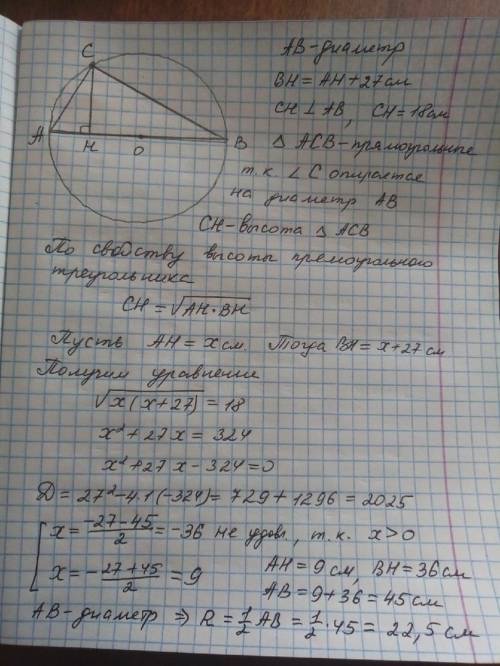 AB-диаметр
BH = AH + 27 см
CH ⊥ AB, CH = 18 см
△ ACB - прямоугольные
т.к. ∠C опирается
на диаметр AB
CH - высота △ ACB
C
A
H
O
B
По свойству высоты прямоугольного
треугольника
CH = √AH·BH
Пусть AH = x см. Тогда BH = x + 27 см
Получим уравнение
√x(x+27) = 18
x² + 27x = 324
x² + 27x - 324 = 0
Д = 27² - 4·1·(-324) = 729 + 1296 = 2025
x = (-27-45)/2 = -36 не удовл., т.к. x > 0
x = -27+45/2 = 9
AH = 9 см, BH = 36 см
AB = 9 + 36 = 45 см
AB - диаметр ⇒ R = 1/2 AB = 1/2 · 45 = 22,5 см